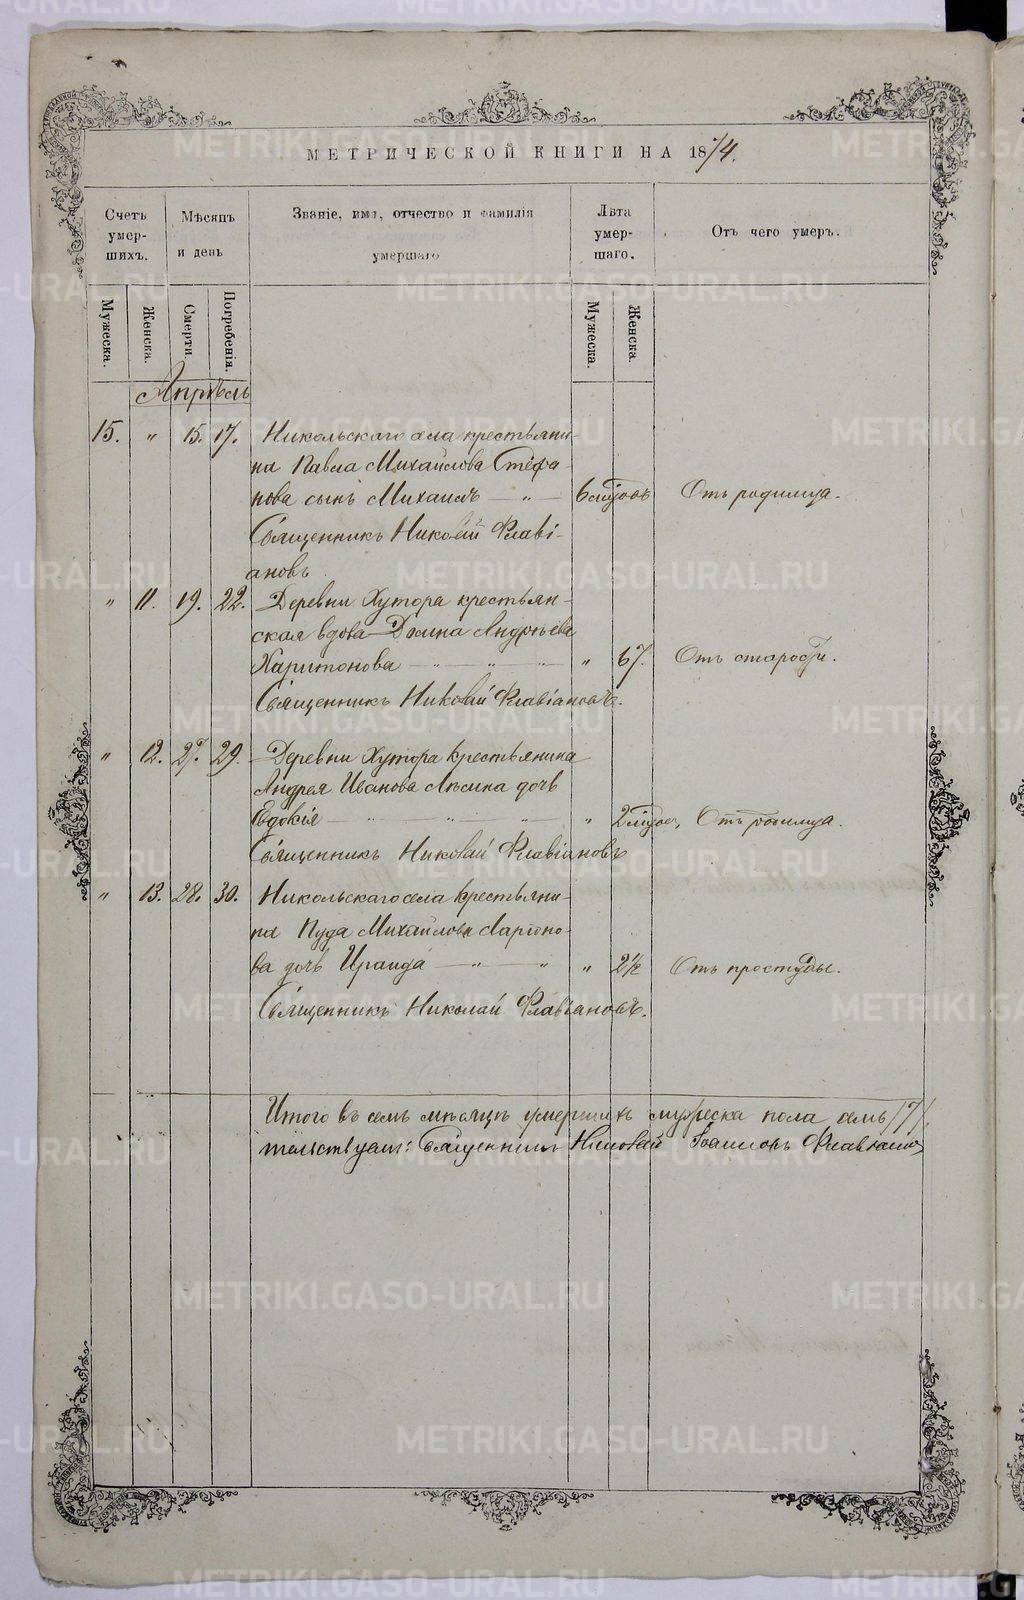 МЕТРИЧЕСКОЙ КНИГИ НА 1874.
Счетъ умер- шихъ.
Мѣсяцъ и день
Званіе, имя, отчество и фамилія умершаго
Лѣта умер- шаго.
Отъ чего умеръ.
Мужеска.
Женска.
Смерти.
Погребенія.
Мужеска.
Женска.
Апрѣль
15. „ 15. 17. Никольскаго села крестьяни-
на Павла Михайлова Стефа-
нова сынъ Михаилъ — „ — 6 Отъ родимца.
Священникъ Николай Флаві-
ановъ.
„ 11. 19. 22. Деревни Хутора крестьян-
ская вдова Андрѣева
Харитонова — „ — „ — „ 67. Отъ старости.
Священникъ Николай Флавіановъ.
„ 12. 27. 29. Деревни Хутора крестьянина
Андрея Иванова дочь
Евдокія — „ — „ — „ 2 Отъ родимца.
Священникъ Николай Флавіановъ
„ 13. 28. 30. Никольскаго села крестьяни-
на Пуда Михайлова Ларіоно-
ва дочь Ираида — „ — „ „ 2½ Отъ простуды.
Священникъ Николай Флавіановъ.
Итого въ семъ мѣсяцѣ умершихъ мужеска пола семь /7/,
тельствуют: Священникъ Николай
METRIKI.GASO-URAL.RU